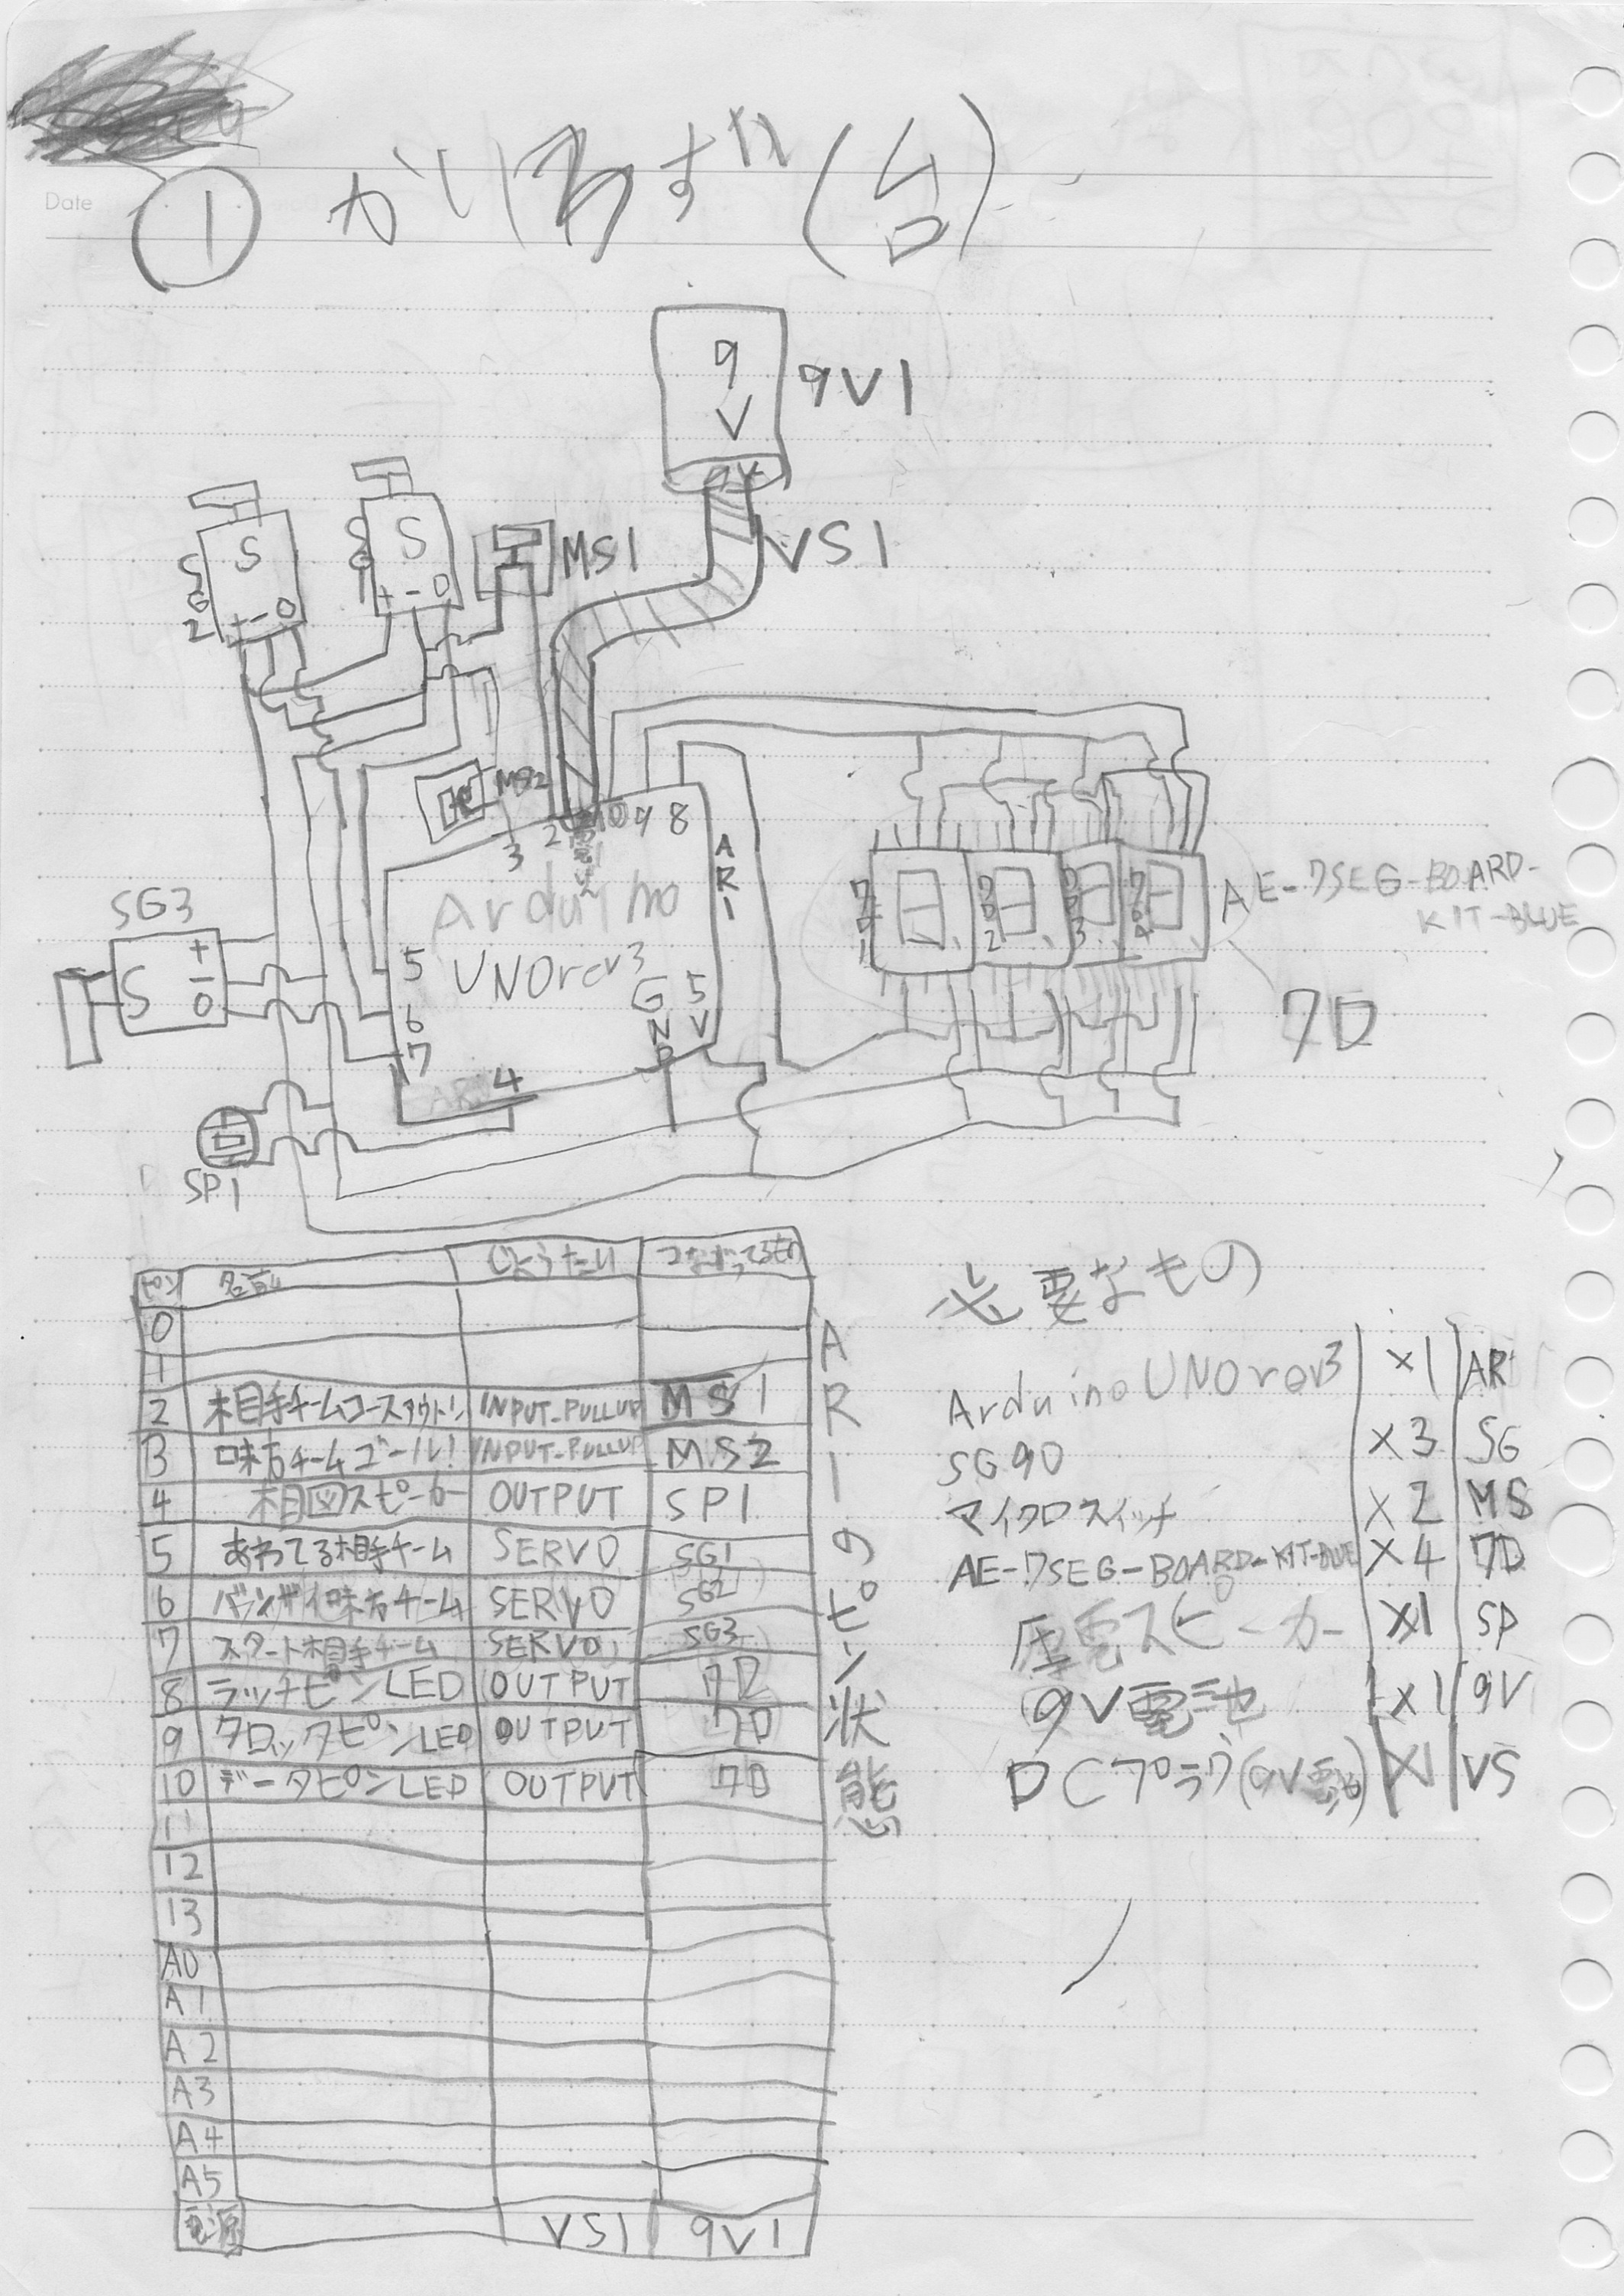 Date
①
(台)
9
V
9V
9V1
VS1
MS1
S
SG1
+-0
S
SG2
+-0
MS2
3 2 10 9 8
Arduino
UNOrev3
AR1
5
6
7
4
GND
5V
SG3
S
+
-
0
SP1
7D1
7D2
7D3
7D4
AE-7SEG-BOARD-
KIT-BLUE
7D
ピン 名前 じょうたい つながってるもの
0
1
2 相手チームコースアウト! INPUT_PULLUP MS1
3 味方チームゴール! INPUT_PULLUP MS2
4 相図スピーカー OUTPUT SP1
5 あわてる相手チーム SERVO SG1
6 バンザイ味方チーム SERVO SG2
7 スタート相手チーム SERVO SG3
8 ラッチピンLED OUTPUT 7D
9 クロックピンLED OUTPUT 7D
10 データピンLED OUTPUT 7D
11
12
13
A0
A1
A2
A3
A4
A5
電源 VS1 9V1
AR1のピン状態
必要なもの
ArduinoUNOrev3 ×1 AR
SG90 ×3 SG
マイクロスイッチ ×2 MS
AE-7SEG-BOARD-KIT-BLUE ×4 7D
圧電スピーカー ×1 SP
9V電池 ×1 9V
DCプラグ(9V電池) ×1 VS